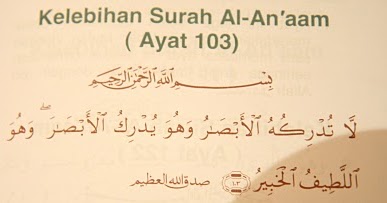 Kelebihan Surah Al-An'aam
( Ayat 103)
بِسْمِ اللَّهِ الرَّحْمَٰنِ الرَّحِيمِ
لَّا تُدْرِكُهُ الْأَبْصَٰرُ وَهُوَ يُدْرِكُ الْأَبْصَٰرَ ۖ وَهُوَ
اللَّطِيفُ الْخَبِيرُ ۝١٠٣ صدق الله العظيم